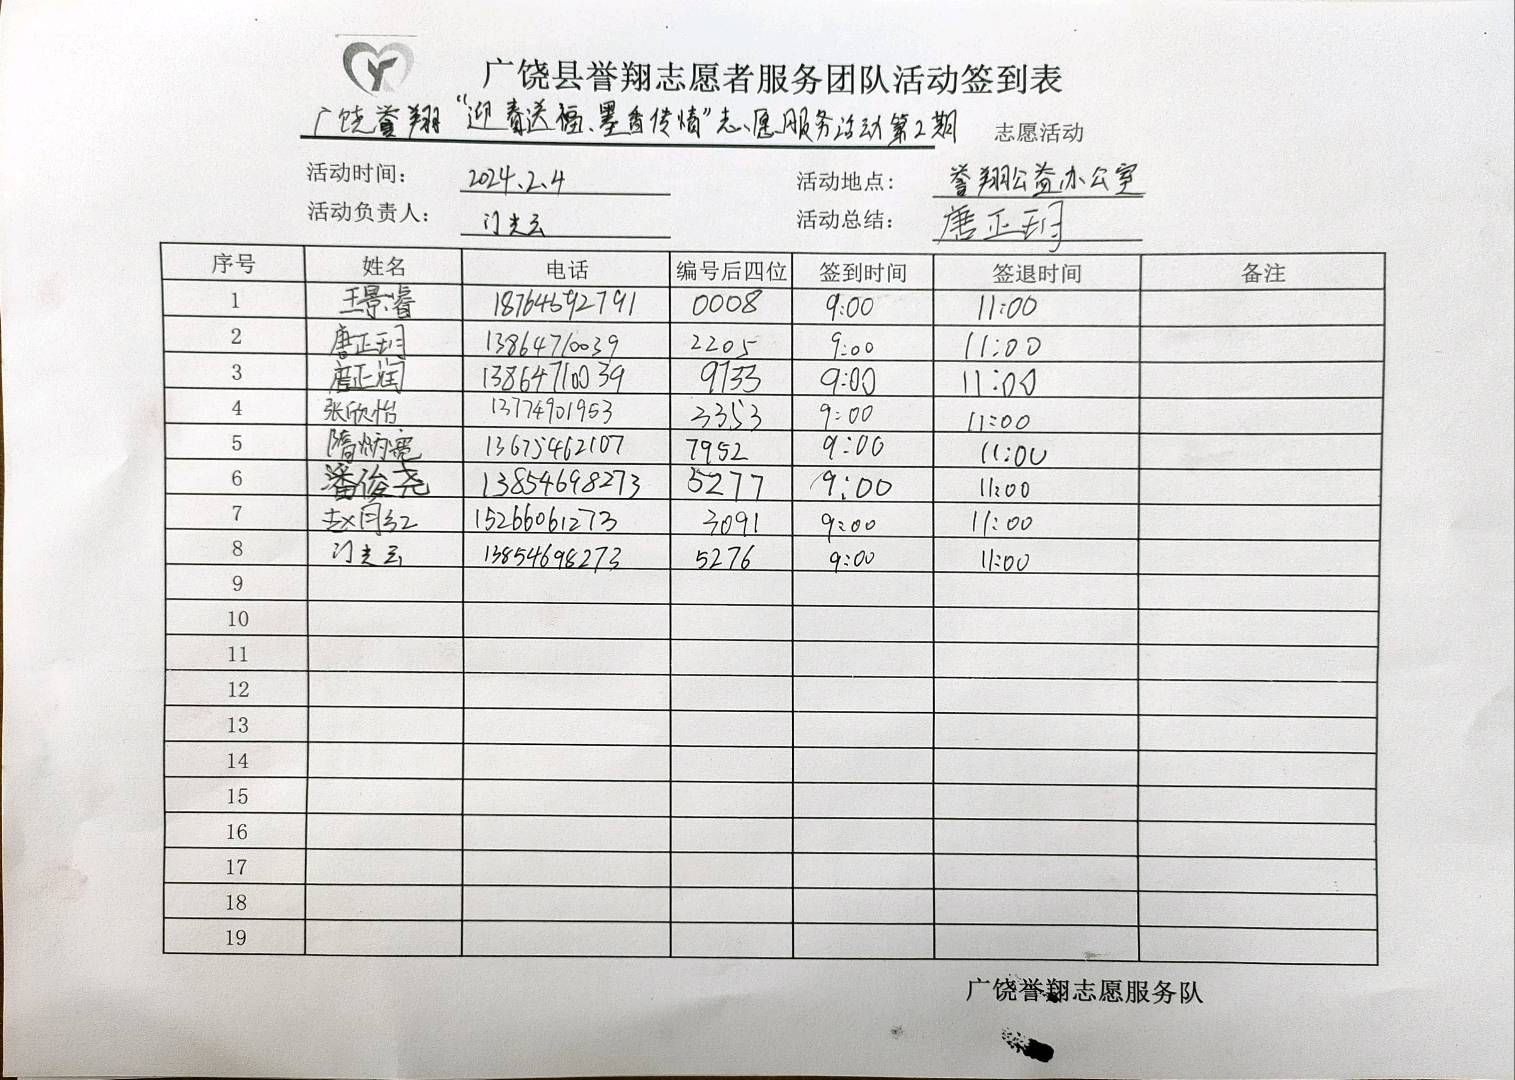 广饶县誉翔志愿者服务团队活动签到表
广饶誉翔“迎春送福、墨香传情”志愿服务活动第2期 志愿活动
活动时间: 2024.2.4 活动地点: 誉翔公益办公室
活动负责人: 门光云 活动总结: 唐正玥
序号 姓名 电话 编号后四位 签到时间 签退时间 备注
1 王景睿 18764592791 0008 9:00 11:00
2 唐正玥 13864710039 2205 9:00 11:00
3 唐正润 13864710039 9733 9:00 11:00
4 张欣怡 13774901953 3353 9:00 11:00
5 隋炳 13675462107 7952 9:00 11:00
6 潘俊尧 13854698273 5277 9:00 11:00
7 赵月红 15266061273 3091 9:00 11:00
8 门光云 13854698273 5276 9:00 11:00
9
10
11
12
13
14
15
16
17
18
19
广饶誉翔志愿服务队